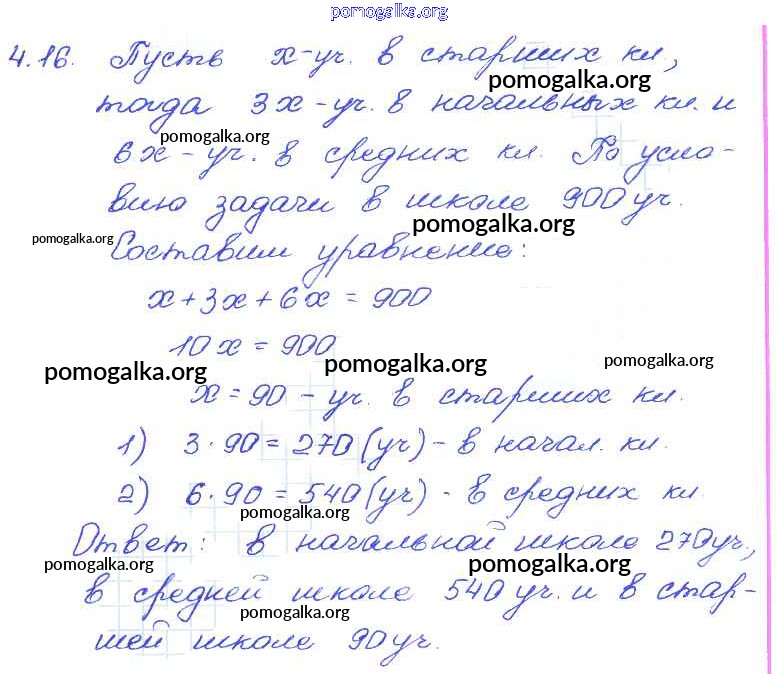 pomogalka.org
4.16. Пусть x-уч. в старших кл.,
pomogalka.org
тогда 3x-уч. в начальных кл. и
pomogalka.org
6x-уч. в средних кл. По усло-
вию задачи в школе 900 уч.
pomogalka.org
pomogalka.org
Составим уравнение:
x+3x+6x=900
10x=900
pomogalka.org
pomogalka.org
pomogalka.org
x=90 - уч. в старших кл.
1) 3·90=270(уч)-в начал. кл.
2) 6·90=540(уч)-в средних кл.
pomogalka.org
Ответ: в начальной школе 270уч.,
pomogalka.org
pomogalka.org
в средней школе 540 уч. и в стар-
pomogalka.org
шей школе 90уч.